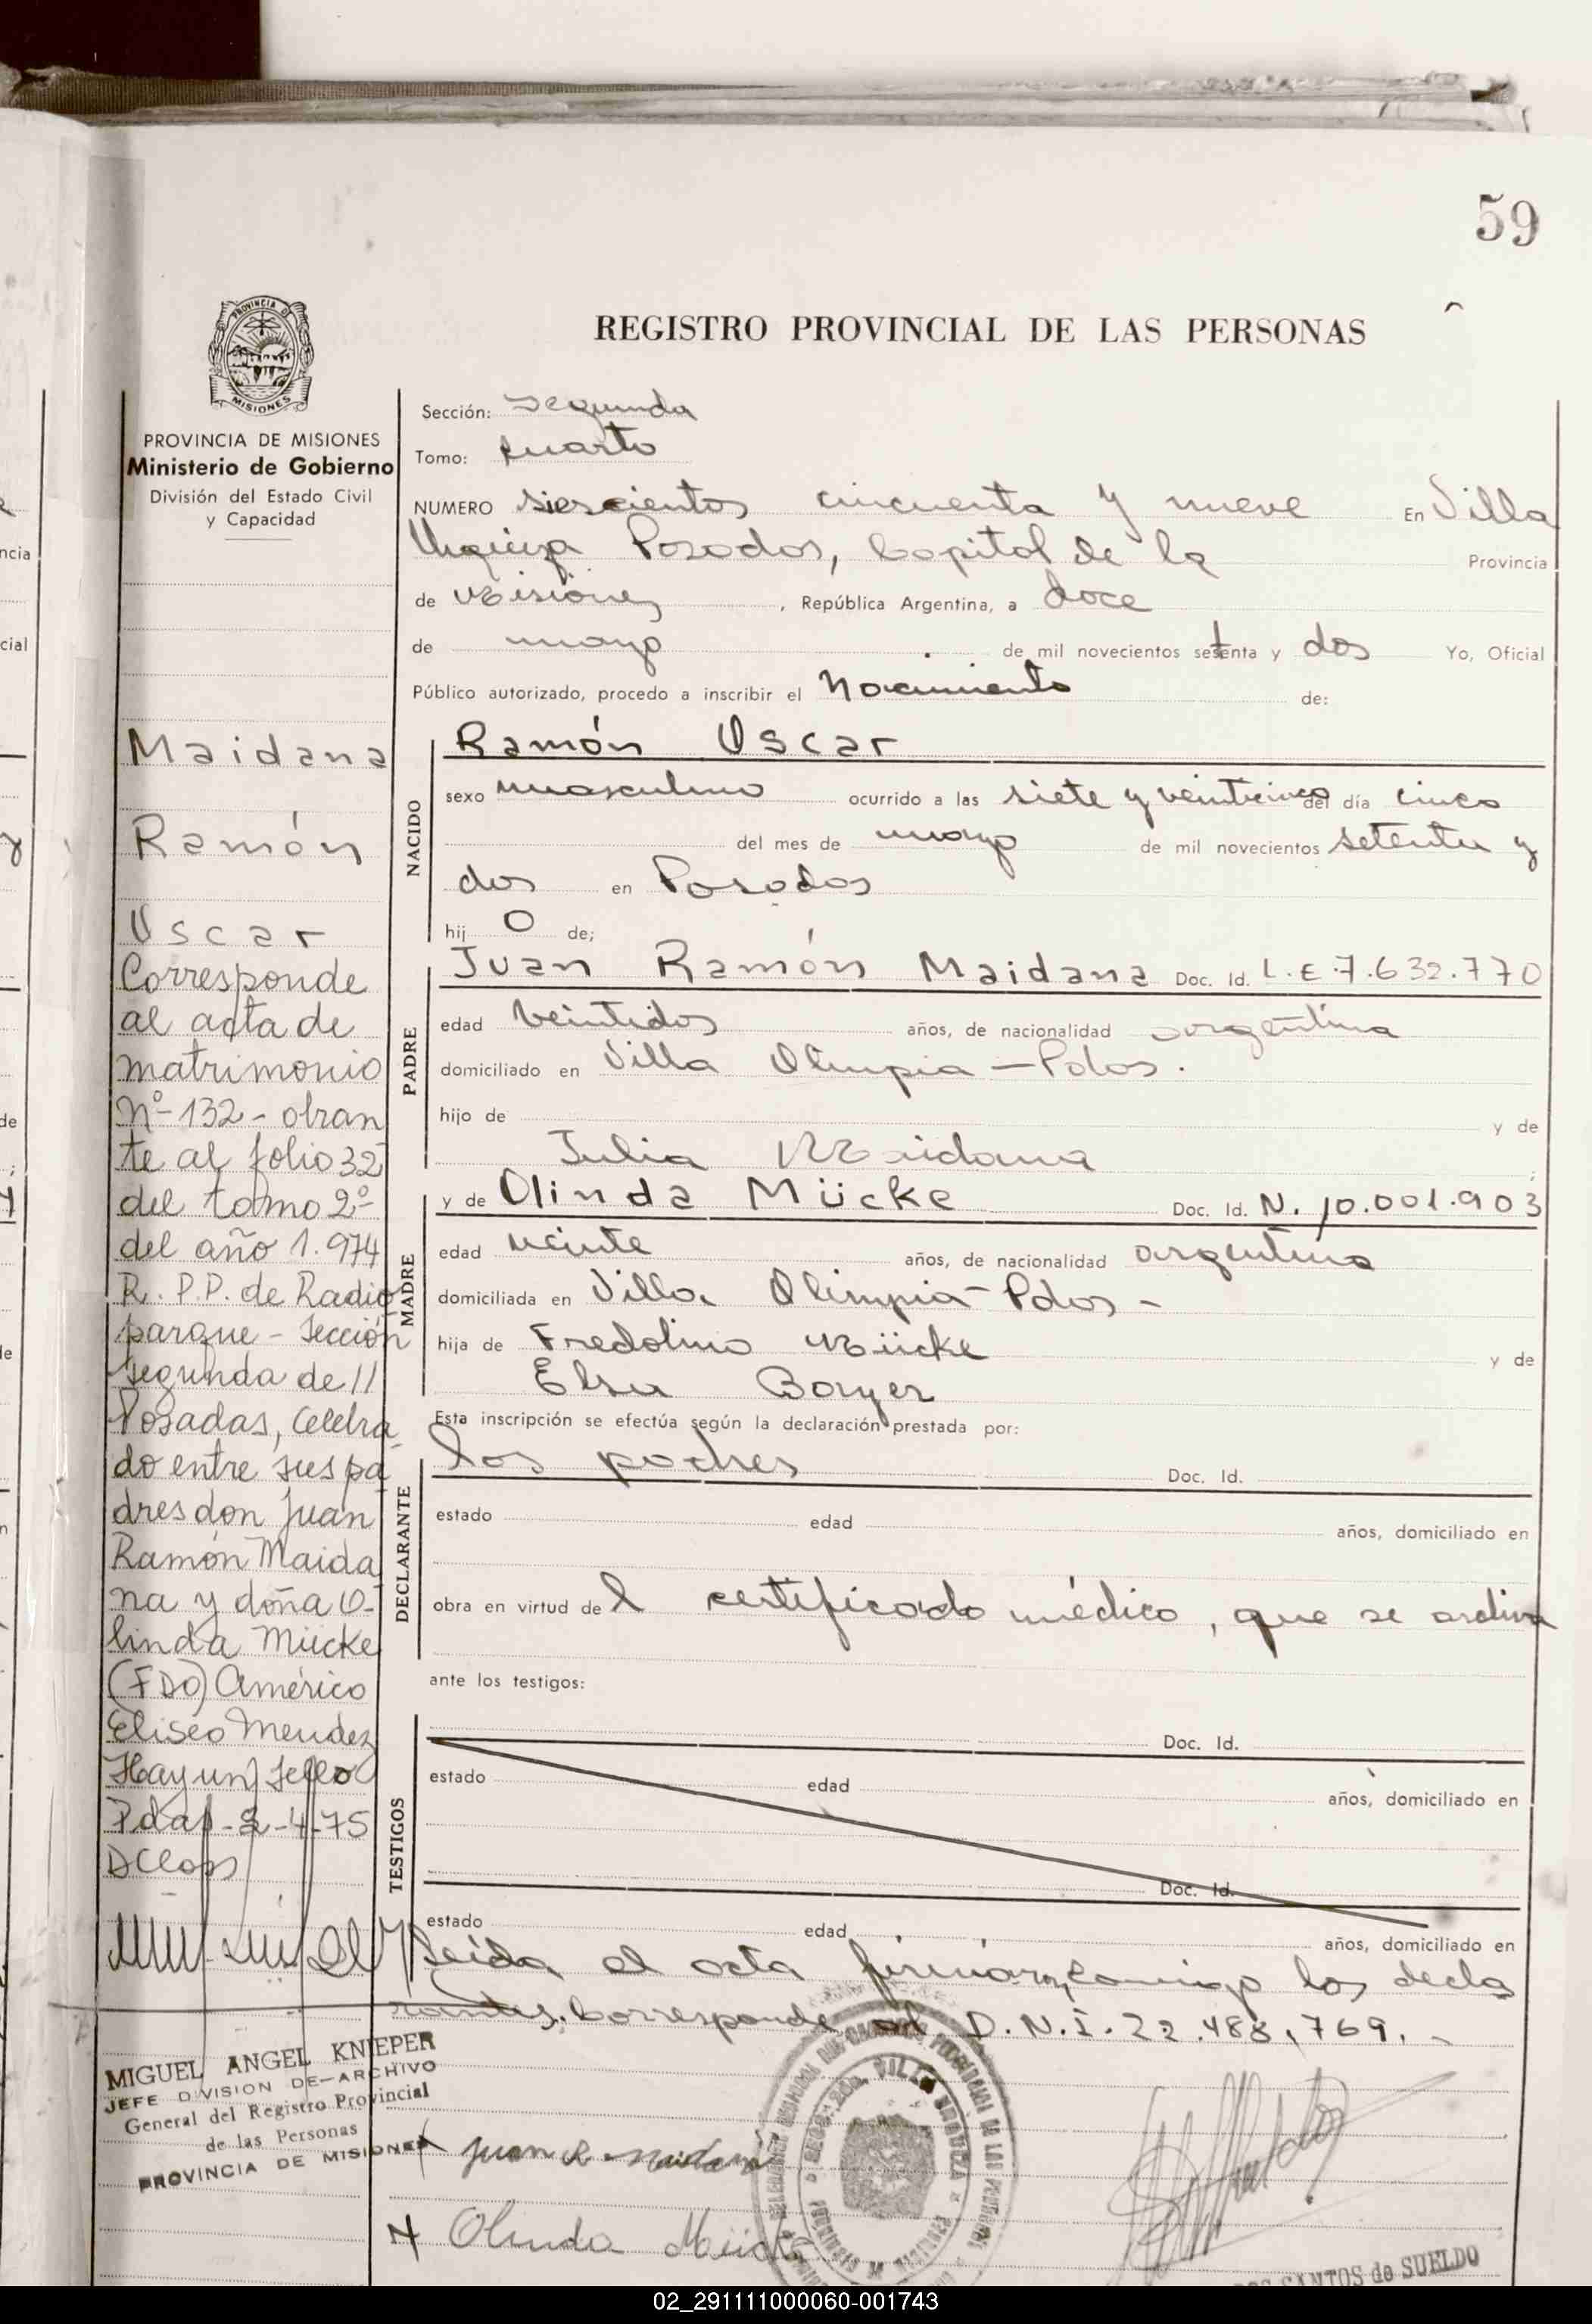 59
REGISTRO PROVINCIAL DE LAS PERSONAS
PROVINCIA DE MISIONES
PROVINCIA DE MISIONES
Ministerio de Gobierno
División del Estado Civil
y Capacidad
Maidana
Ramón
Oscar
Corresponde
al acta de
matrimonio
Nº-132- obran
te al folio 32
del tomo 2º
del año 1.974
R. P.P. de Radio
parque - Sección
segunda de
Posadas, celebra
do entre sus pa
dres don Juan
Ramón Maida
na y doña O-
linda Mücke
(FDO) Américo
Eliseo Mendez
Hay un sello
Pdas-2-4-75
MIGUEL ANGEL KNIEPER
JEFE DIVISION DE-ARCHIVO
General del Registro Provincial
de las Personas
PROVINCIA DE MISIONES
Sección: Segunda
Tomo: cuarto
NUMERO seiscientos cincuenta y nueve En Villa
Urquiza Posadas, Capital de la Provincia
de Misiones, República Argentina, a doce
de mayo de mil novecientos setenta y dos Yo, Oficial
Público autorizado, procedo a inscribir el Nacimiento de:
NACIDO
Ramón Oscar
sexo masculino ocurrido a las siete y veinticinco del día cinco
del mes de mayo de mil novecientos setenta y
dos en Posadas
hij o de;
PADRE
Juan Ramón Maidana Doc. Id. L.E.7.632.770
edad veintidos años, de nacionalidad argentina
domiciliado en Villa Olimpia - Pdas.
hijo de y de
Julia Maidana
MADRE
y de Olinda Mücke Doc. Id. N. 10.001.903
edad veinte años, de nacionalidad argentina
domiciliada en Villa Olimpia - Pdas -
hija de Fredolino Mücke y de
Elsa Boryer
Esta inscripción se efectúa según la declaración prestada por:
DECLARANTE
los padres Doc. Id.
estado edad años, domiciliado en
obra en virtud de l certificado médico, que se archiva
ante los testigos:
TESTIGOS
Doc. Id.
estado edad años, domiciliado en
Doc. Id.
estado edad años, domiciliado en
Leida el acta firman conmigo los decla
rantes. Corresponde al D.N.I. 22.488.769. -
Juan R. Maidana
Olinda Mücke
VILLA URQUIZA
SANTOS de SUELDO
02_291111000060-001743